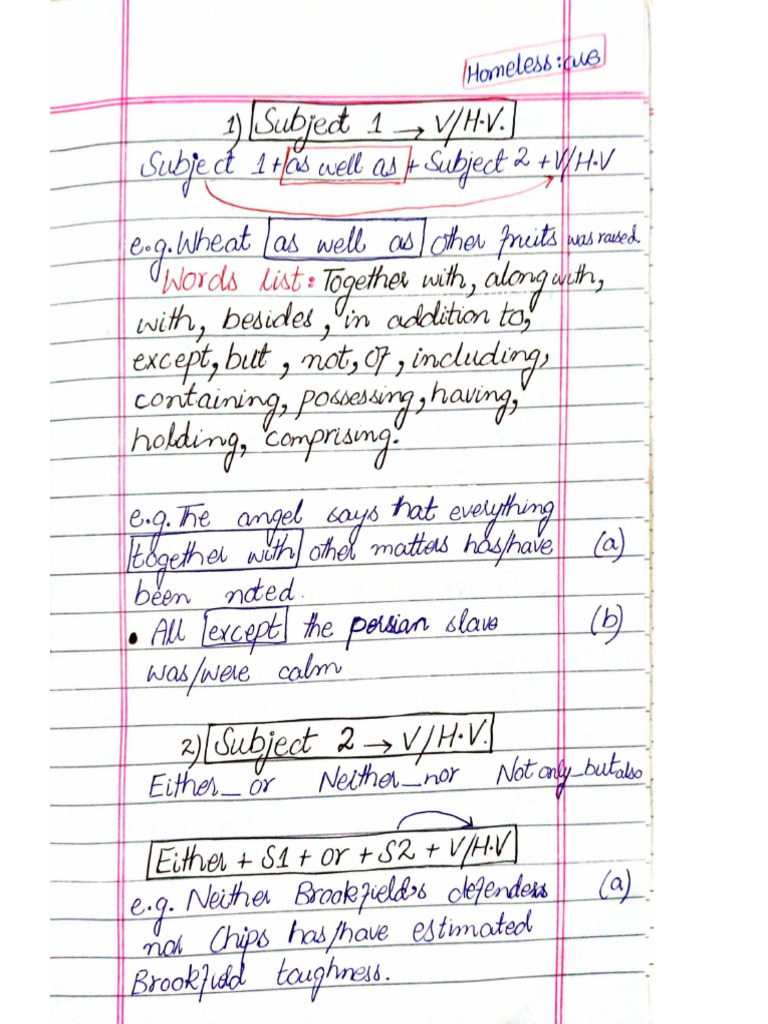 Homeless:CUB
1) Subject 1 → V/H.V.
Subject 1 + as well as + Subject 2 + V/H.V
e.g. Wheat as well as other fruits was raised.
Words list: Together with, along with,
with, besides, in addition to,
except, but, not, of, including,
containing, possessing, having,
holding, comprising.
e.g. The angel says that everything
together with other matters has/have (a)
been noted.
• All except the persian slave (b)
was/were calm
2) Subject 2 → V/H.V.
Either_or Neither_nor Not only_but also
Either + S1 + or + S2 + V/H.V
e.g. Neither Brookfield's defenders (a)
nor Chips has/have estimated
Brookfield toughness.